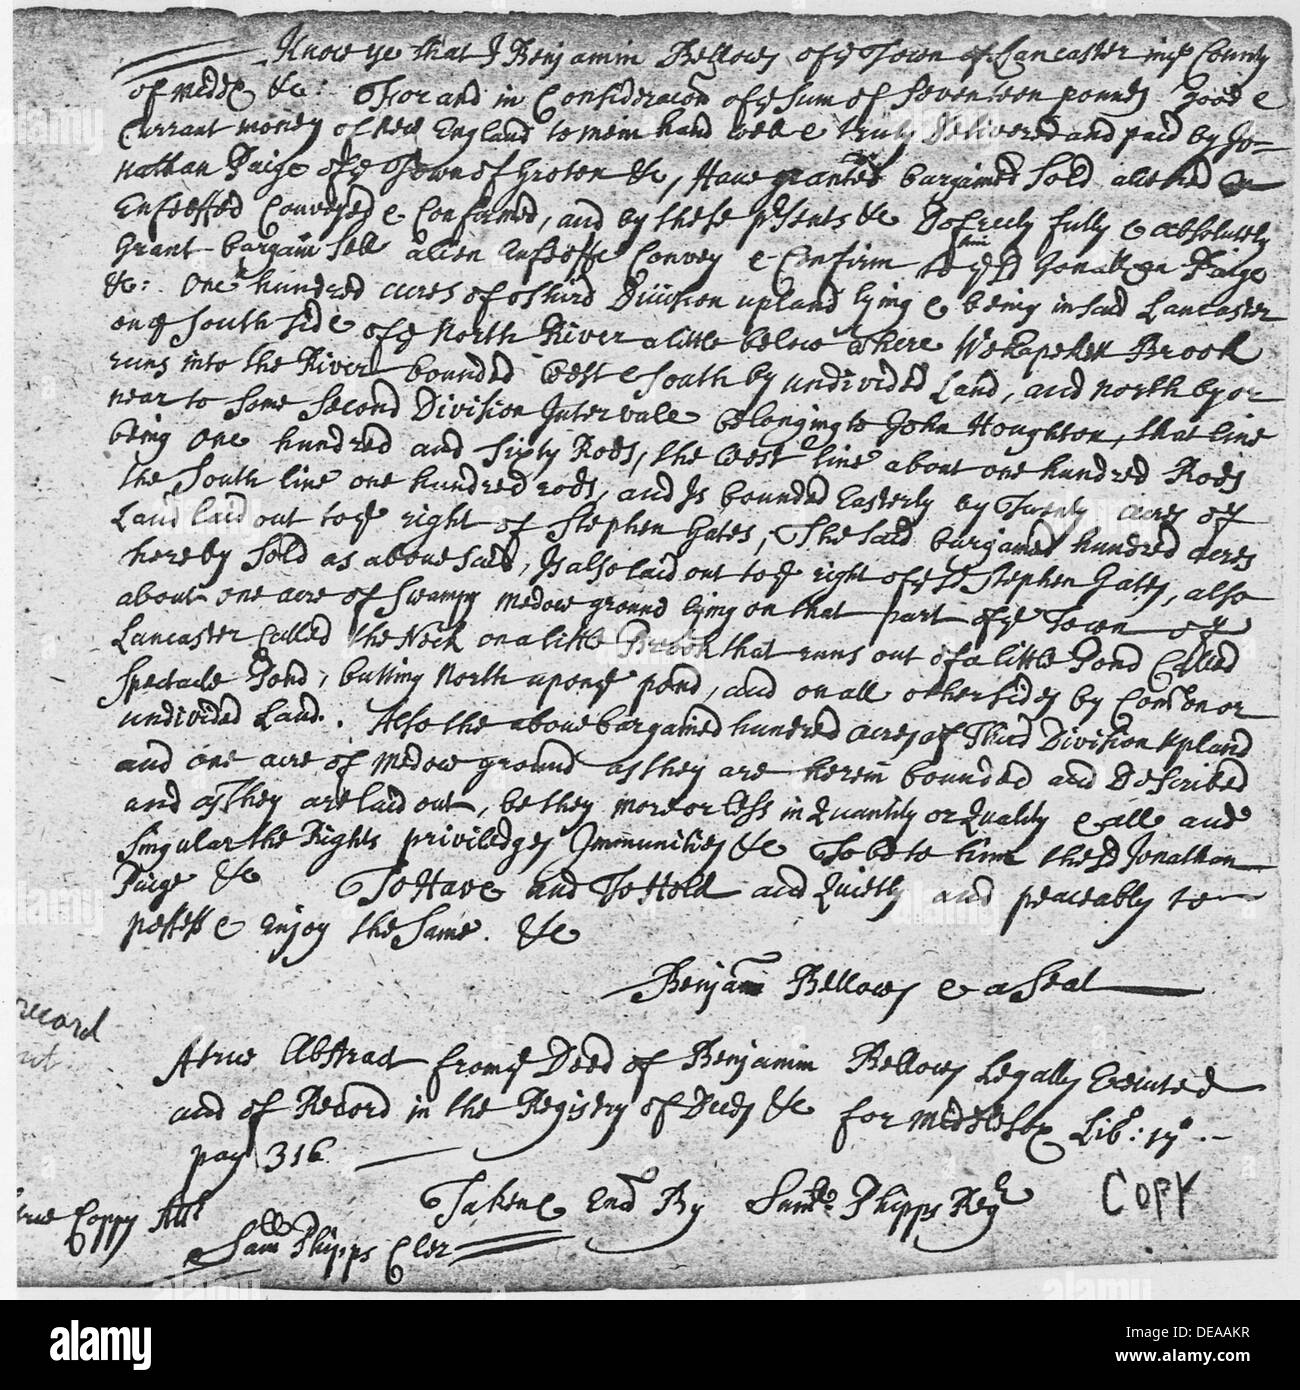 Know ye that I Benjamin Bellows of ye Town of Lancaster in ye County
of Midd &c: For and in Consideracon of ye sum of seventeen pounds Good &
Currant money of new England to me in hand well & truly Delivered and paid by Jo-
nathan Paige of ye Town of Groton &c, Have granted bargained Sold aliened
Enfeoffed Conveyed & Confirmed, and by these psents &c Do freely fully & absolutely
Grant bargain Sell alien enfeoffe Convey & Confirm to him ye sd Jonathan Paige
&c: One hundred acres of Third Division upland lying & being in said Lancaster
on ye South side of ye North River a little below where Wekapeken Brook
runs into the River bounded west & South by undivided Land, and north by or
near to some second Division Intervale belonging to John Houghton, that line
being One hundred and sixty Rods, the west line about one hundred Rods
the South line one hundred rods, and Is bounded Easterly by Twenty acres of
Land laid out to ye right of Stephen Gates, The said bargained hundred acres
hereby Sold as abovesaid, Is also laid out to ye right of ye sd Stephen Gates, also
about one acre of Swampy medow ground lying on that part of ye Town of
Lancaster Called the Neck on a little Brook that runs out of a little Pond Called
Spectacle Pond, butting North upon ye pond, and on all other sides by Comon or
undivided Land. Also the above bargained hundred acres of Third Division upland
and one acre of medow ground as they are herein bounded and Described
and as They are laid out, be they more or less in Quantity or Quality & all and
Singular the Rights priviledges Immunities &c To be to him the sd Jonathan
Paige &c To Have and To Hold and Quietly and peaceably to
possess & enjoy the Same. &c
Benjamin Bellows & a Seal
A true Abstract from ye Deed of Benjamin Bellows Legally Executed
and of Record in the Registry of Deeds &c for Middlesex Lib: 17o
pag 316
record
Taken & End By Samll Phipps Regr
COPY
true Coppy Attr
Samll Phipps Cler
alamy
DEAAKR
www.alamy.com